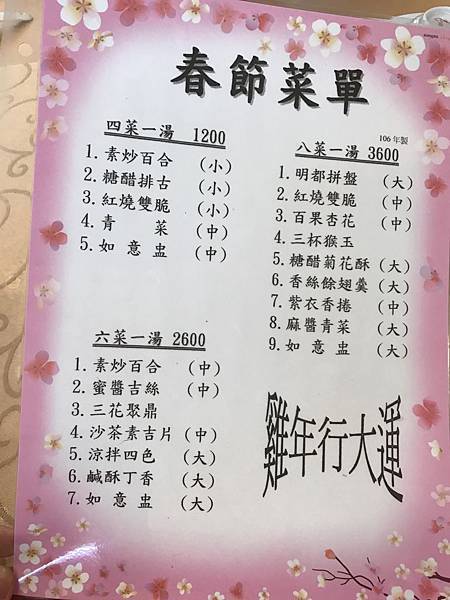 春節菜單
四菜一湯 1200
1. 素炒百合 (小)
2. 糖醋排古 (小)
3. 紅燒雙脆 (小)
4. 青菜 (中)
5. 如意盅 (中)
106年製
八菜一湯 3600
1. 明都拼盤 (大)
2. 紅燒雙脆 (中)
3. 百果杏花 (中)
4. 三杯猴玉
5. 糖醋菊花酥 (大)
6. 香絲餘翅羹 (大)
7. 紫衣香捲 (中)
8. 麻醬青菜 (大)
9. 如意盅 (大)
六菜一湯 2600
1. 素炒百合 (中)
2. 蜜醬吉絲 (中)
3. 三花聚鼎
4. 沙茶素吉片 (中)
5. 涼拌四色 (大)
6. 鹹酥丁香 (大)
7. 如意盅 (大)
雞年行大運